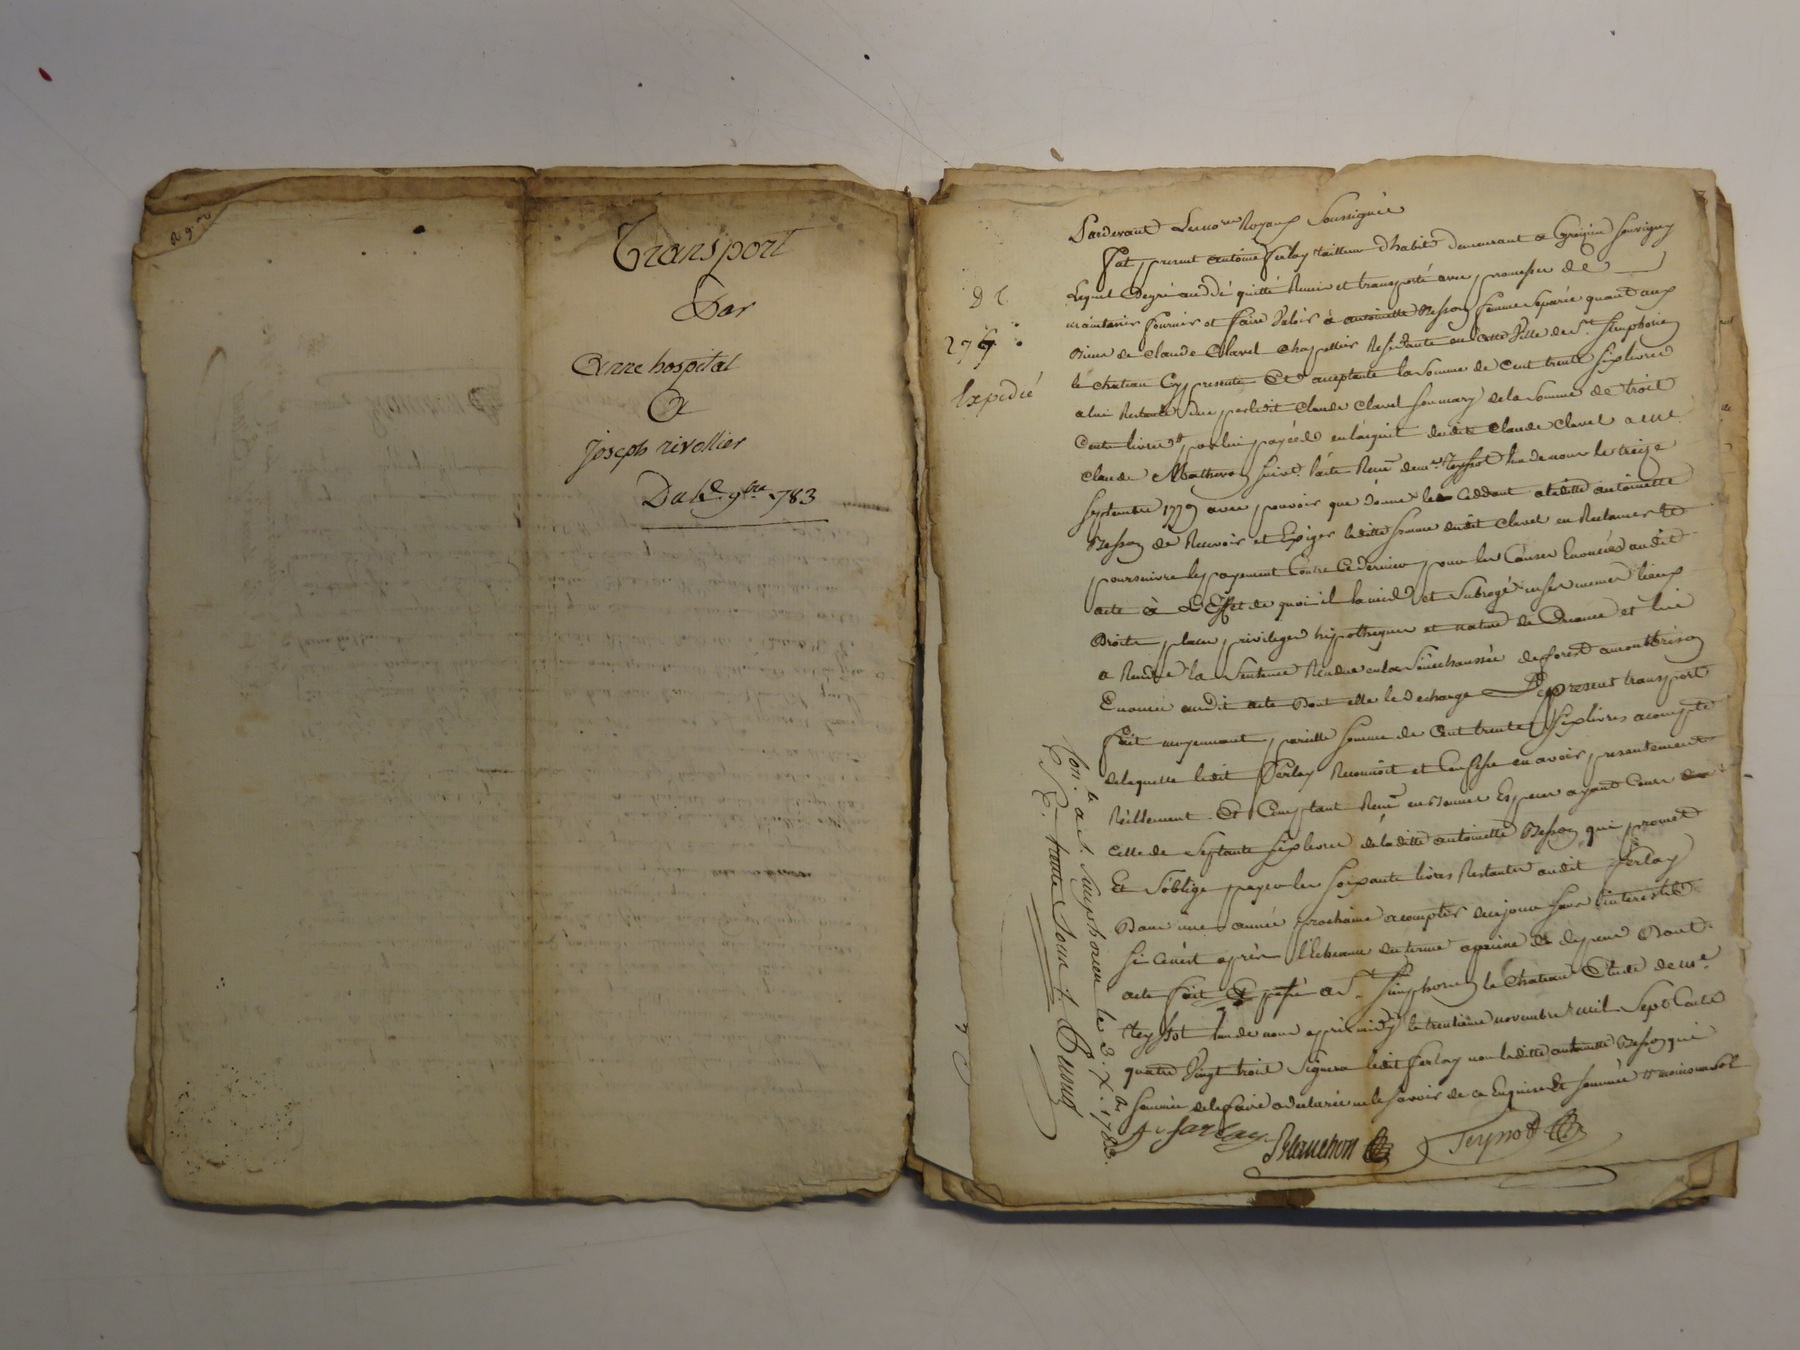 Transport
Par
Anne hospital
A
Joseph rivollier
Du 9bre 1783
Pardevant Les no.res Royaux Soussignés
fut present antoine ferlay tailleur d'habits demeurant a Grezieu Souvigny
Lequel de gré a cedé quitté Remis et transporté avec promesse de
maintenir fournir et faire valoir a antoinette Besson femme Separée quant aux
Biens de Claude Clavel Chapellier Residante en cette ville de St. Simphorien
le chateau Cy presente Et acceptante la Somme de Cent trente Six livres
a lui Restante due par ledit Claude Clavel Son mary de la Somme de trois
Cents livres par lui payée en l'acquit dudit Claude Clavel a me.
Claude Matheron Suivt. l'acte Recu de me. Teyssot l'un de nous le treize
Septembre 1779 avec pouvoir que donne le Ceddant a ladite antoinette
Besson de Recevoir et Exiger ladite Somme dudit Clavel en Reclamer et
poursuivre le payement Contre Ce dernier pour les Causes Enoncées audit
acte à L'Effet de quoi il la mise et Subrogé en ses memes lieux
Droits place privileges hipotheques et nature de Creance et lui
a Remis la Sentence Rendue en la Sénéchaussée de forest a montbrison
Enoncée audit acte Dont elle le decharge Le present transport
fait moyennant pareille Somme de Cent trente Six livres acompte
delaquelle ledit Ferlay Reconnoit et Confesse en avoir presentement
Réellement Et Comptant Recu en Bonnes Especes ayant Cours
Celle de Septante Six livres de ladite antoinette Besson qui promet
Et S'oblige payer les Soixante livres Restantes audit Ferlay
Dans une année prochaine acompter de ce jour Sans interest
Si Ce n'est après l'Echeance du terme a peine de depens Dont
acte fait & passé a St. Simphorien le Chateau Etude de me.
Teyssot l'un de nous après midy le trentième novembre mil Sept Cents
quatre Vingt trois Signera ledit ferlay non ladite antoinette Besson qui
Sommée de le faire a declarée ne le Savoir de ce Enquise Et Sommée
A ferlay
Blanchon
Teyssot
276
Expedié
Con. le a S. Simphorien le 3. Xbre. 1783.
trente Sous